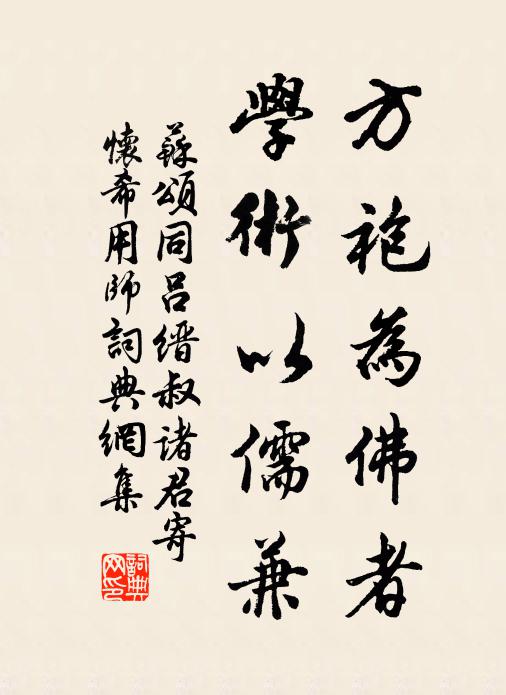 方袍為佛者
學術以儒兼
蘇頌同呂縉叔諸君寄
懷希用師詞典網集
詞典網印